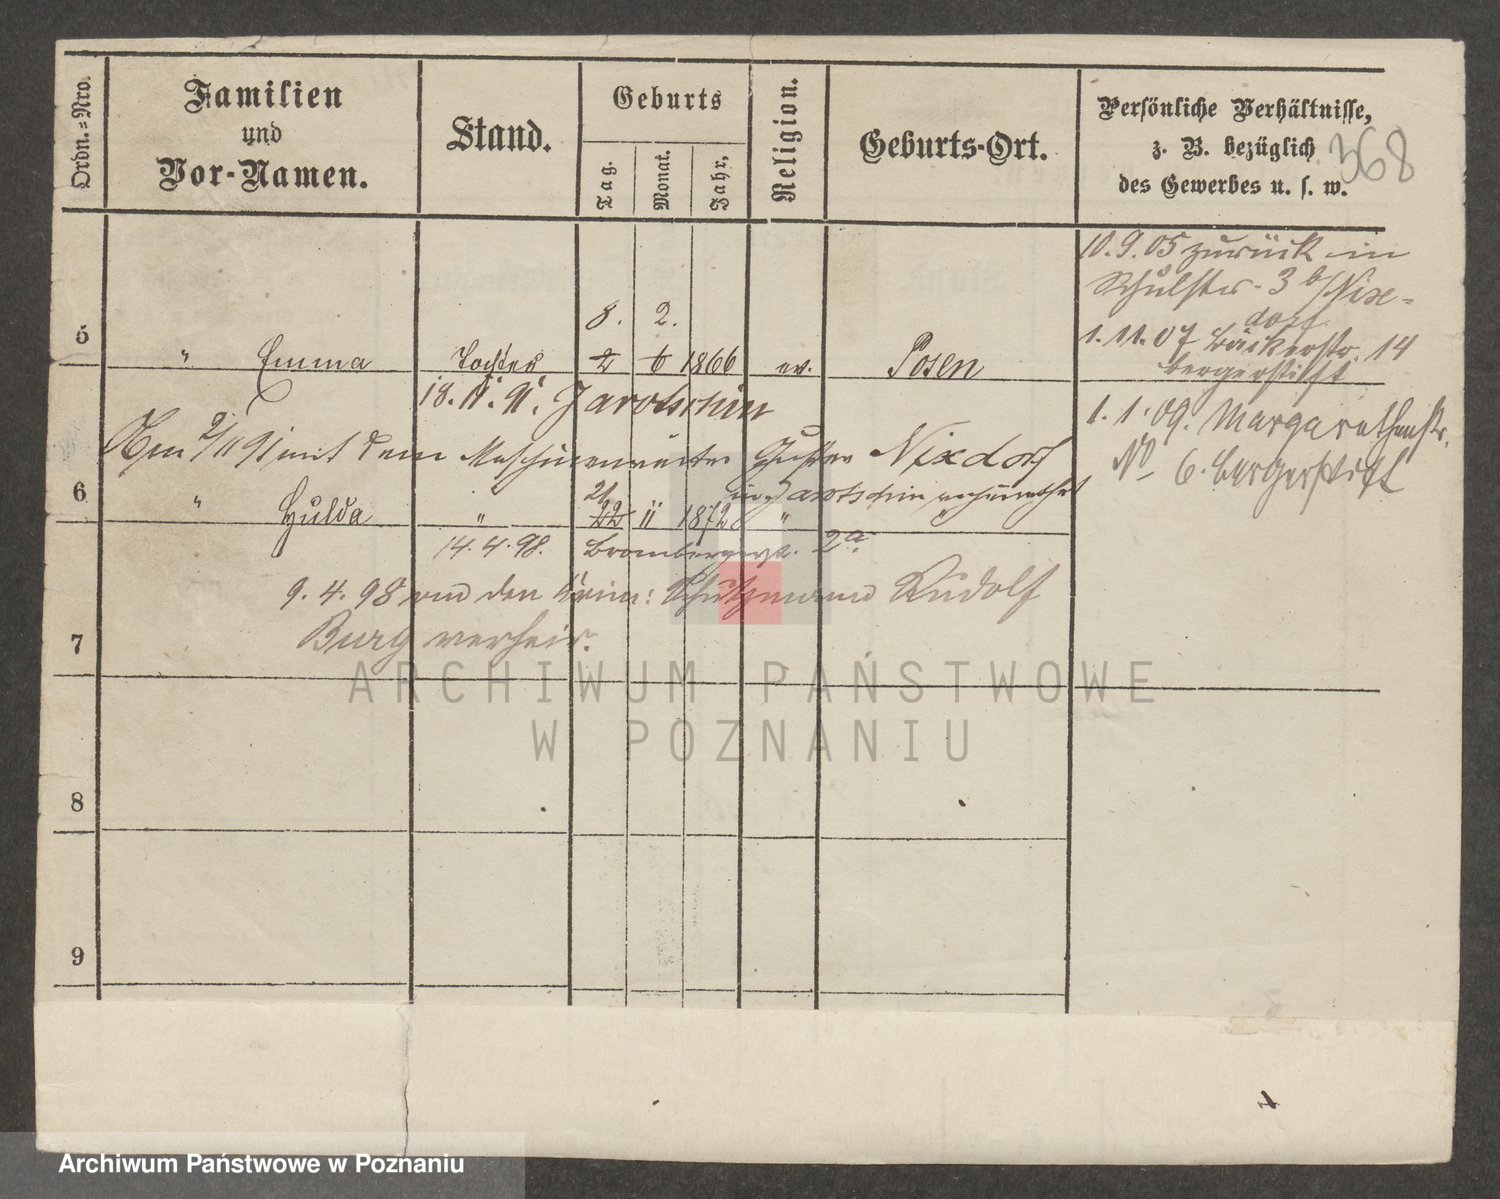 Ordn.=Nro.
Familien
und
Vor-Namen.
Stand.
Geburts
Tag.
Monat.
Jahr,
Religion.
Geburts-Ort.
Persönliche Verhältnisse,
z. B. bezüglich
des Gewerbes u. s. w.
368
10.9.05 zurück in
Schulstr. 3 b/Nixe=
dorf.
1.11.07 Bäckerstr. 14
Bergerstift
1.1.09. Margarethenstr.
No 6. Bergerstift
8. 2.
5
" Emma Tochter 2 6 1866 ev. Posen
18.11.91. Jarotschin
Am 2/11 91 mit dem Gustav Nixdorf
in Jarotschin verheirathet
21
6
" Hulda " 22 11 1872 " "
14.4.98. Brombergerstr. 2a.
9.4.98 mit den Krim: Schutzmann Rudolf
Burg verheir.
7
8
9
ARCHIWUM PAŃSTWOWE
W POZNANIU
Archiwum Państwowe w Poznaniu